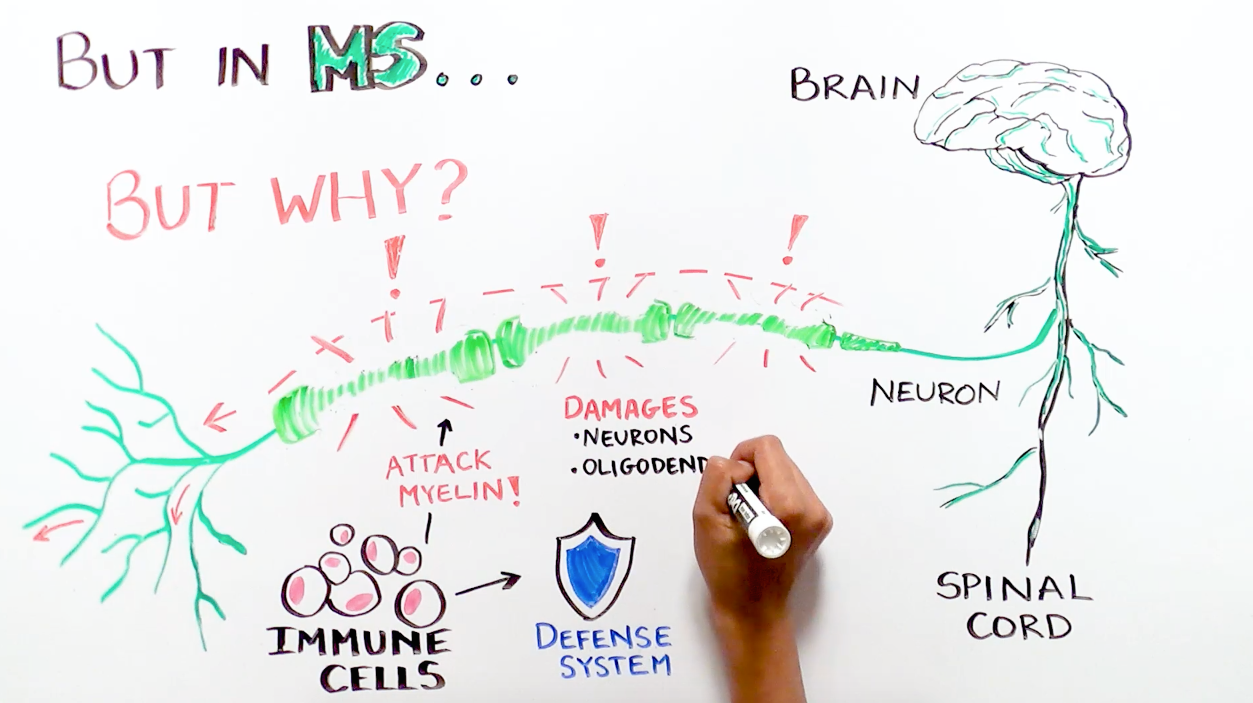 BUT IN MS...
BRAIN
BUT WHY?
! ! !
NEURON
DAMAGES
•NEURONS
•OLIGODEND
ATTACK
MYELIN!
IMMUNE
CELLS
DEFENSE
SYSTEM
SPINAL
CORD